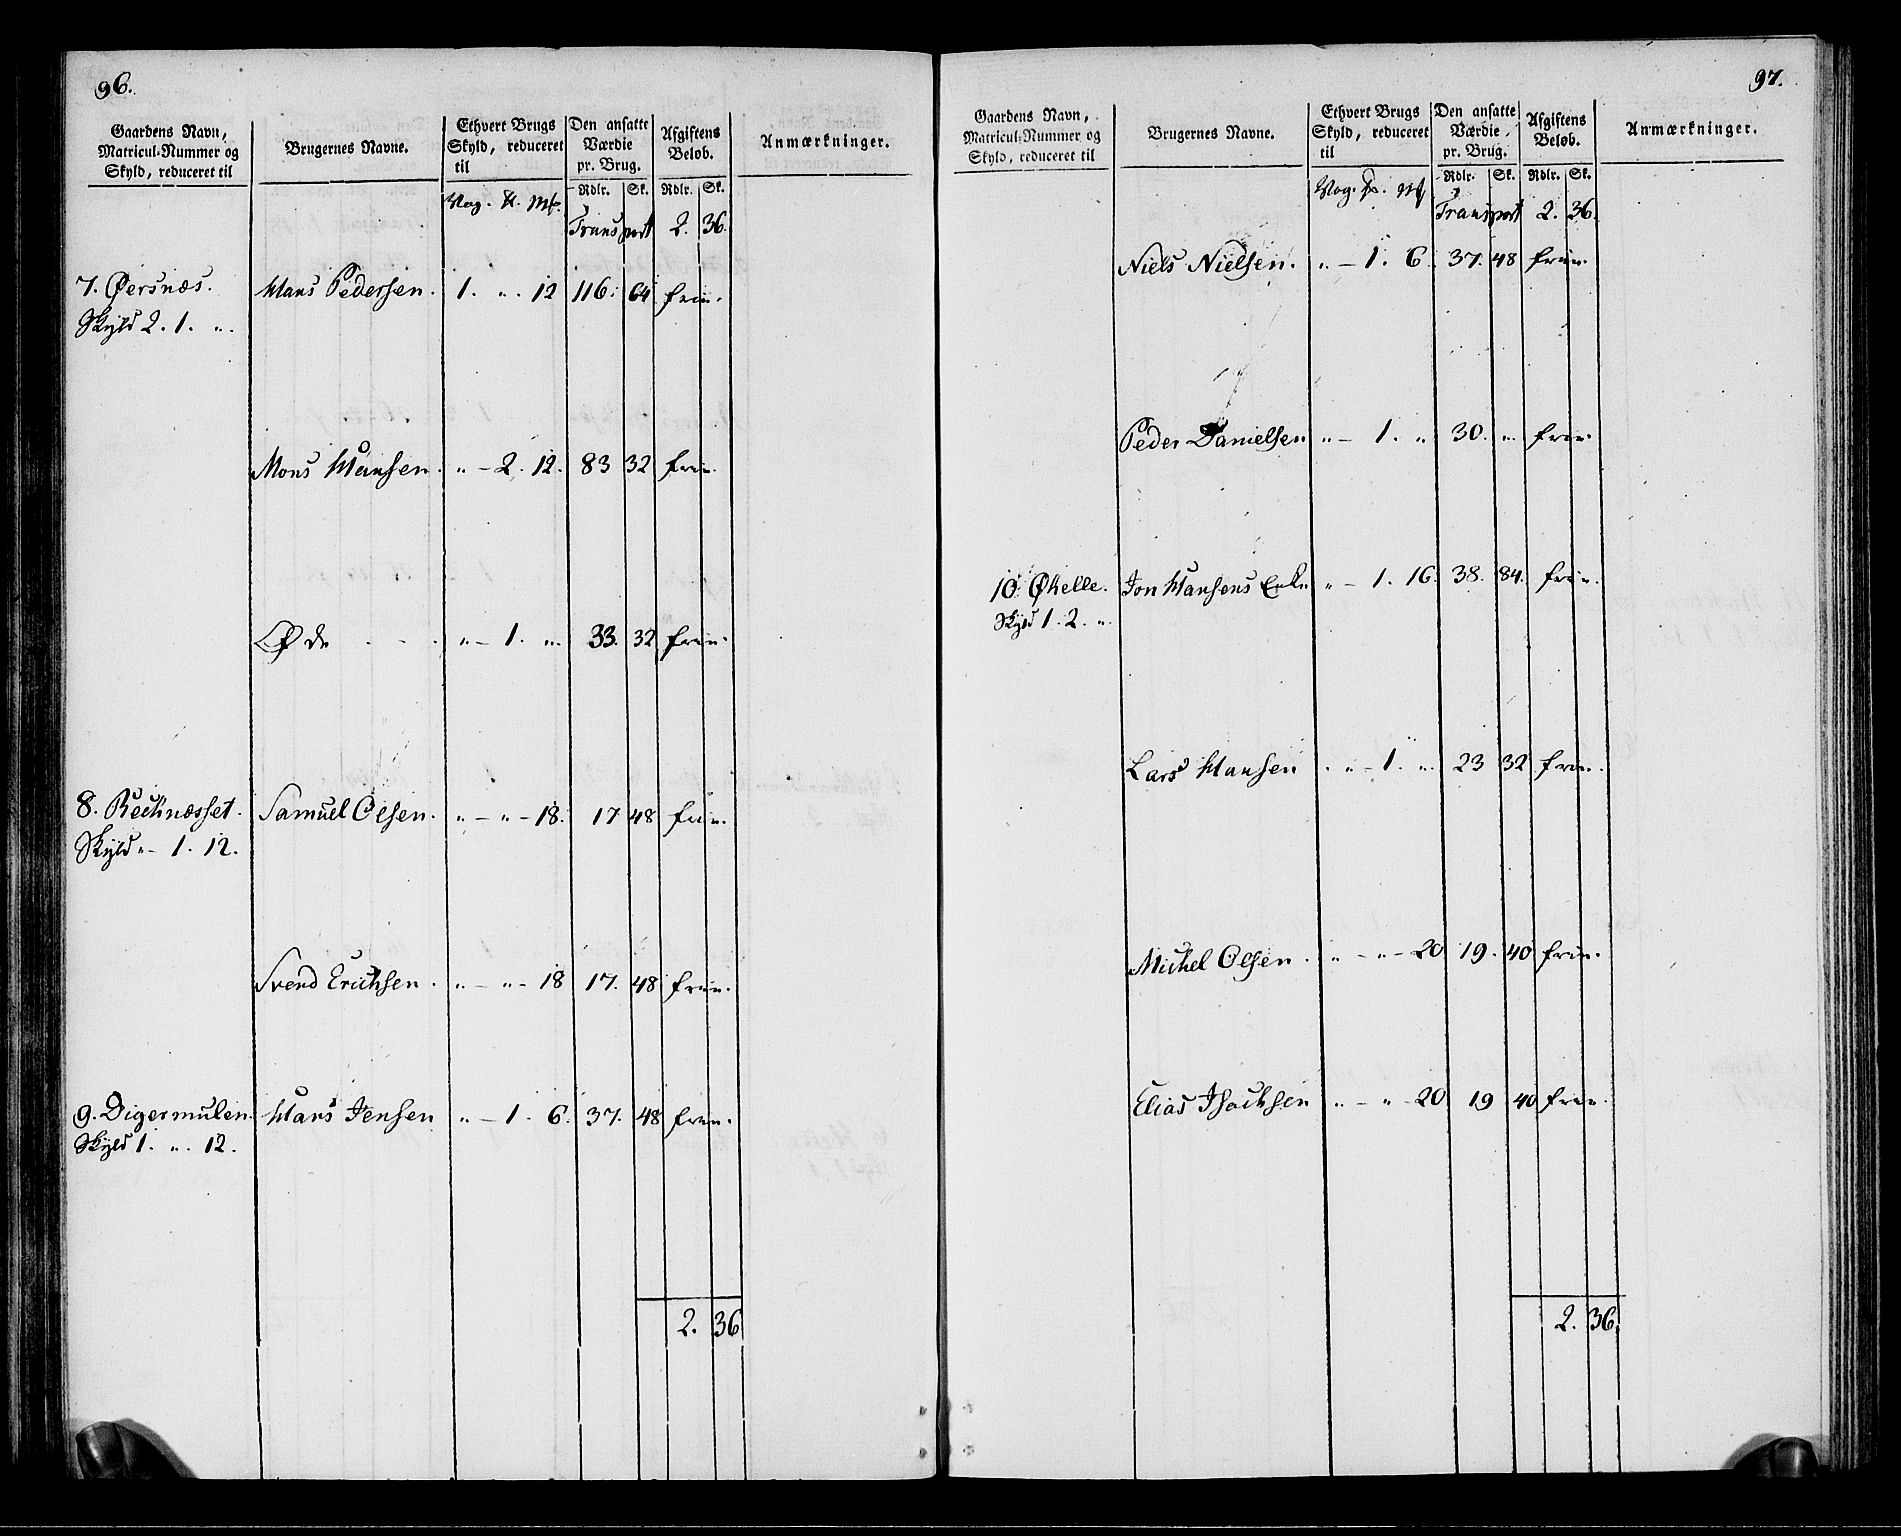 96.
Gaardens Navn, Matricul-Nummer og Skyld, reduceret til
Brugernes Navne.
Ethvert Brugs Skyld, reduceret til
Den ansatte Værdie pr. Brug.
Afgiftens Beløb.
Anmærkninger.
Vog. ℔. Mk. Rdlr. Sk. Rdlr. Sk.
Transport 2. 36.
7. Øersnæs. Hans Pedersen. 1. „ . 12 116. 64 frie.
Skyld 2. 1. „.
Mons Hansen. „ – 2. 12. 83 32 frie.
Øde . . . „ – 1. „. 33. 32 frie.
8. Rechnæsset. Samuel Olsen. „ – „ – 18. 17 48 frie.
Skyld „ – 1. 12.
Svend Erichsen. „ – „ – 18 17. 48 frie.
9. Digermulen. Hans Jensen „ – 1. 6. 37. 48 frie.
Skyld 1. „. 12.
2. 36
97.
Gaardens Navn, Matricul-Nummer og Skyld, reduceret til
Brugernes Navne.
Ethvert Brugs Skyld, reduceret til
Den ansatte Værdie pr. Brug.
Afgiftens Beløb.
Anmærkninger.
Vog. ℔. Mk Rdlr. Sk. Rdlr. Sk.
Transport 2. 36.
Niels Nielsen. „ – 1. 6. 37. 48 frie.
Peder Danielsen „ – 1. „ 30. „ frie.
10. Øhelle. Jon Hansens Enke „ – 1. 16. 38. 84. frie.
Skyld 1. 2. „.
Lars Hansen . „ – 1. „. 23 32 frie.
Michel Olsen. „ – „ – 20 19. 40 frie.
Elias Isachsen „ – „ – 20 19 40 frie.
2. 36.